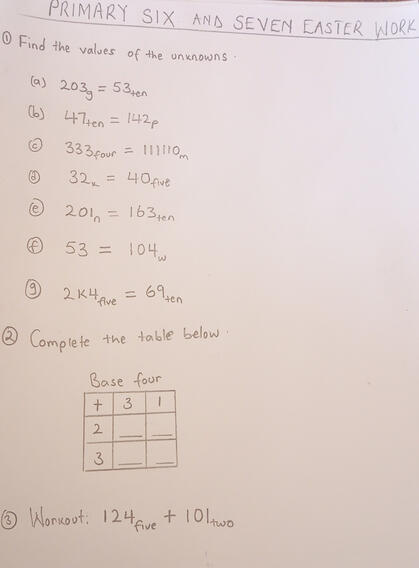 PRIMARY SIX AND SEVEN EASTER WORK
① Find the values of the unknowns.
(a) 203g = 53ten
(b) 47ten = 142p
(c) 333four = 111110m
(d) 32x = 40five
(e) 201n = 163ten
(f) 53 = 104w
(g) 2K4five = 69ten
② Complete the table below.
Base four
+ 3 1
2 __ __
3 __ __
③ Workout: 124five + 101two